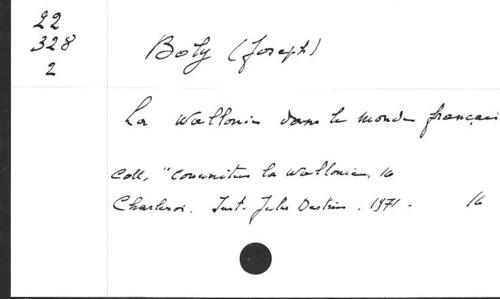 22
328
2
Boly (Joseph)
La Wallonie dans le monde français
Coll. "Connaître la Wallonie, 16
Charleroi. Inst. Jules Destrée. 1971. 16